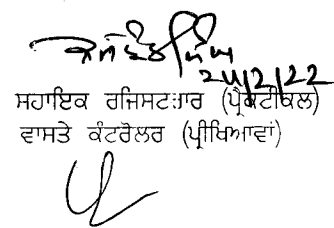 24/2/22
ਸਹਾਇਕ ਰਜਿਸਟਰਾਰ (ਪ੍ਰੈਕਟੀਕਲ)
ਵਾਸਤੇ ਕੰਟਰੋਲਰ (ਪ੍ਰੀਖਿਆਵਾਂ)